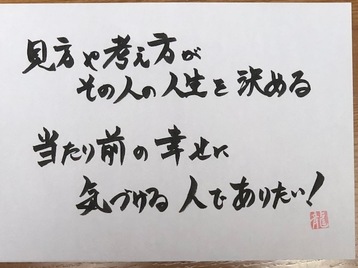 見方や考え方が
その人の人生を決める
当たり前の幸せに
気づける人でありたい!